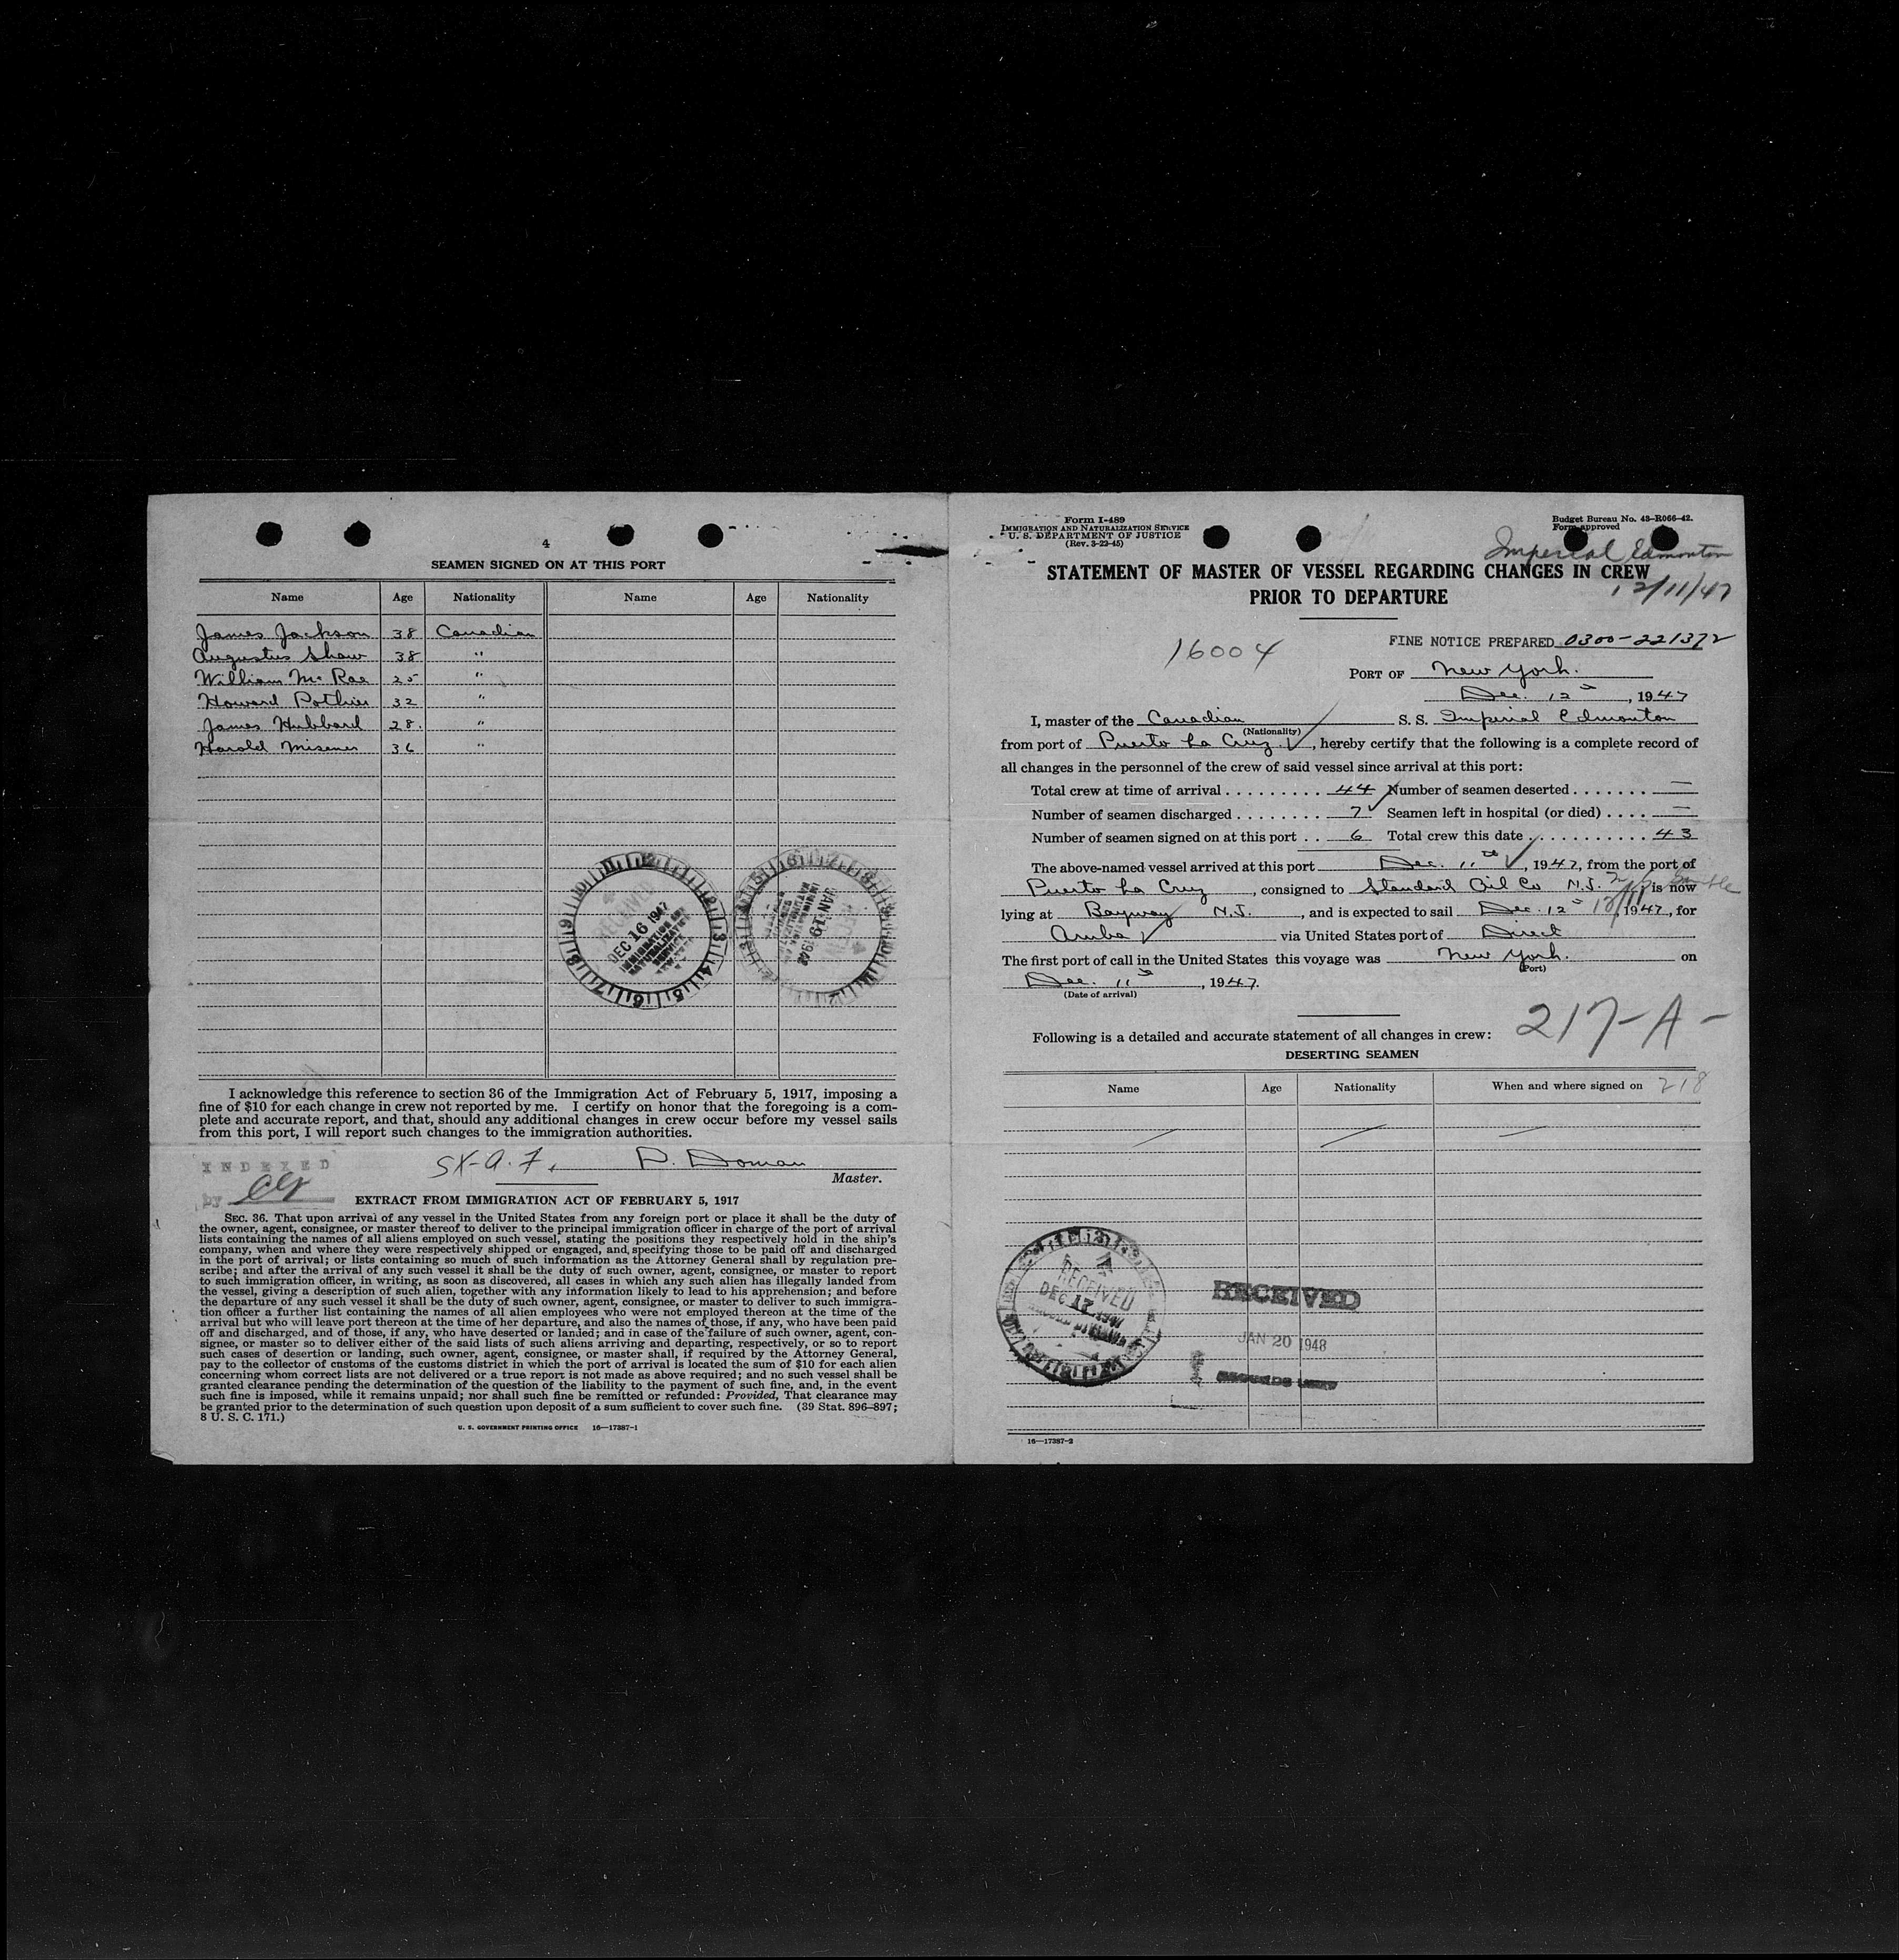 4
SEAMEN SIGNED ON AT THIS PORT
Name Age Nationality Name Age Nationality
James Jackson 38 Canadian
Augustus Shaw 38 "
William McRae 25 "
Howard Pothier 32 "
James Hubbard 28. "
Harold Misener 36 "
RECEIVED
DEC 16 1947
IMMIGRATION AND
NATURALIZATION
SERVICE
JAN 19 1948
I acknowledge this reference to section 36 of the Immigration Act of February 5, 1917, imposing a
fine of $10 for each change in crew not reported by me. I certify on honor that the foregoing is a com-
plete and accurate report, and that, should any additional changes in crew occur before my vessel sails
from this port, I will report such changes to the immigration authorities.
INDEXED
by
D. Doman
Master.
EXTRACT FROM IMMIGRATION ACT OF FEBRUARY 5, 1917
SEC. 36. That upon arrival of any vessel in the United States from any foreign port or place it shall be the duty of
the owner, agent, consignee, or master thereof to deliver to the principal immigration officer in charge of the port of arrival
lists containing the names of all aliens employed on such vessel, stating the positions they respectively hold in the ship's
company, when and where they were respectively shipped or engaged, and specifying those to be paid off and discharged
in the port of arrival; or lists containing so much of such information as the Attorney General shall by regulation pre-
scribe; and after the arrival of any such vessel it shall be the duty of such owner, agent, consignee, or master to report
to such immigration officer, in writing, as soon as discovered, all cases in which any such alien has illegally landed from
the vessel, giving a description of such alien, together with any information likely to lead to his apprehension; and before
the departure of any such vessel it shall be the duty of such owner, agent, consignee, or master to deliver to such immigra-
tion officer a further list containing the names of all alien employees who were not employed thereon at the time of the
arrival but who will leave port thereon at the time of her departure, and also the names of those, if any, who have been paid
off and discharged, and of those, if any, who have deserted or landed; and in case of the failure of such owner, agent, con-
signee, or master so to deliver either of the said lists of such aliens arriving and departing, respectively, or so to report
such cases of desertion or landing, such owner, agent, consignee, or master shall, if required by the Attorney General,
pay to the collector of customs of the customs district in which the port of arrival is located the sum of $10 for each alien
concerning whom correct lists are not delivered or a true report is not made as above required; and no such vessel shall be
granted clearance pending the determination of the question of the liability to the payment of such fine, and, in the event
such fine is imposed, while it remains unpaid; nor shall such fine be remitted or refunded: Provided, That clearance may
be granted prior to the determination of such question upon deposit of a sum sufficient to cover such fine. (39 Stat. 896–897;
8 U. S. C. 171.)
U. S. GOVERNMENT PRINTING OFFICE 16—17387-1
Form I-489
IMMIGRATION AND NATURALIZATION SERVICE
U. S. DEPARTMENT OF JUSTICE
(Rev. 3-22-45)
Budget Bureau No. 43-R066-42.
Form approved
Imperial Edmonton
12/11/47
STATEMENT OF MASTER OF VESSEL REGARDING CHANGES IN CREW
PRIOR TO DEPARTURE
16004
FINE NOTICE PREPARED 0300-221372
PORT OF New York.
Dec. 12th, 1947
I, master of the Canadian S. S. Imperial Edmonton
(Nationality)
from port of Puerto La Cruz, hereby certify that the following is a complete record of
all changes in the personnel of the crew of said vessel since arrival at this port:
Total crew at time of arrival . . . . . . . . . 44 Number of seamen deserted . . . . . . . —
Number of seamen discharged . . . . . . . . 7 Seamen left in hospital (or died) . . . . —
Number of seamen signed on at this port . . 6 Total crew this date . . . . . . . . . . . 43
The above-named vessel arrived at this port Dec. 11th, 1947, from the port of
Puerto La Cruz, consigned to Standard Oil Co N.J. is now
lying at Bayway N.J., and is expected to sail Dec. 12th, 1947, for
Aruba via United States port of Direct
The first port of call in the United States this voyage was New York. on
(Port)
Dec. 11th, 1947.
(Date of arrival)
217-A-
Following is a detailed and accurate statement of all changes in crew:
DESERTING SEAMEN
Name Age Nationality When and where signed on 218
RECEIVED
DEC 17 1947
RECEIVED
JAN 20 1948
16—17387-2